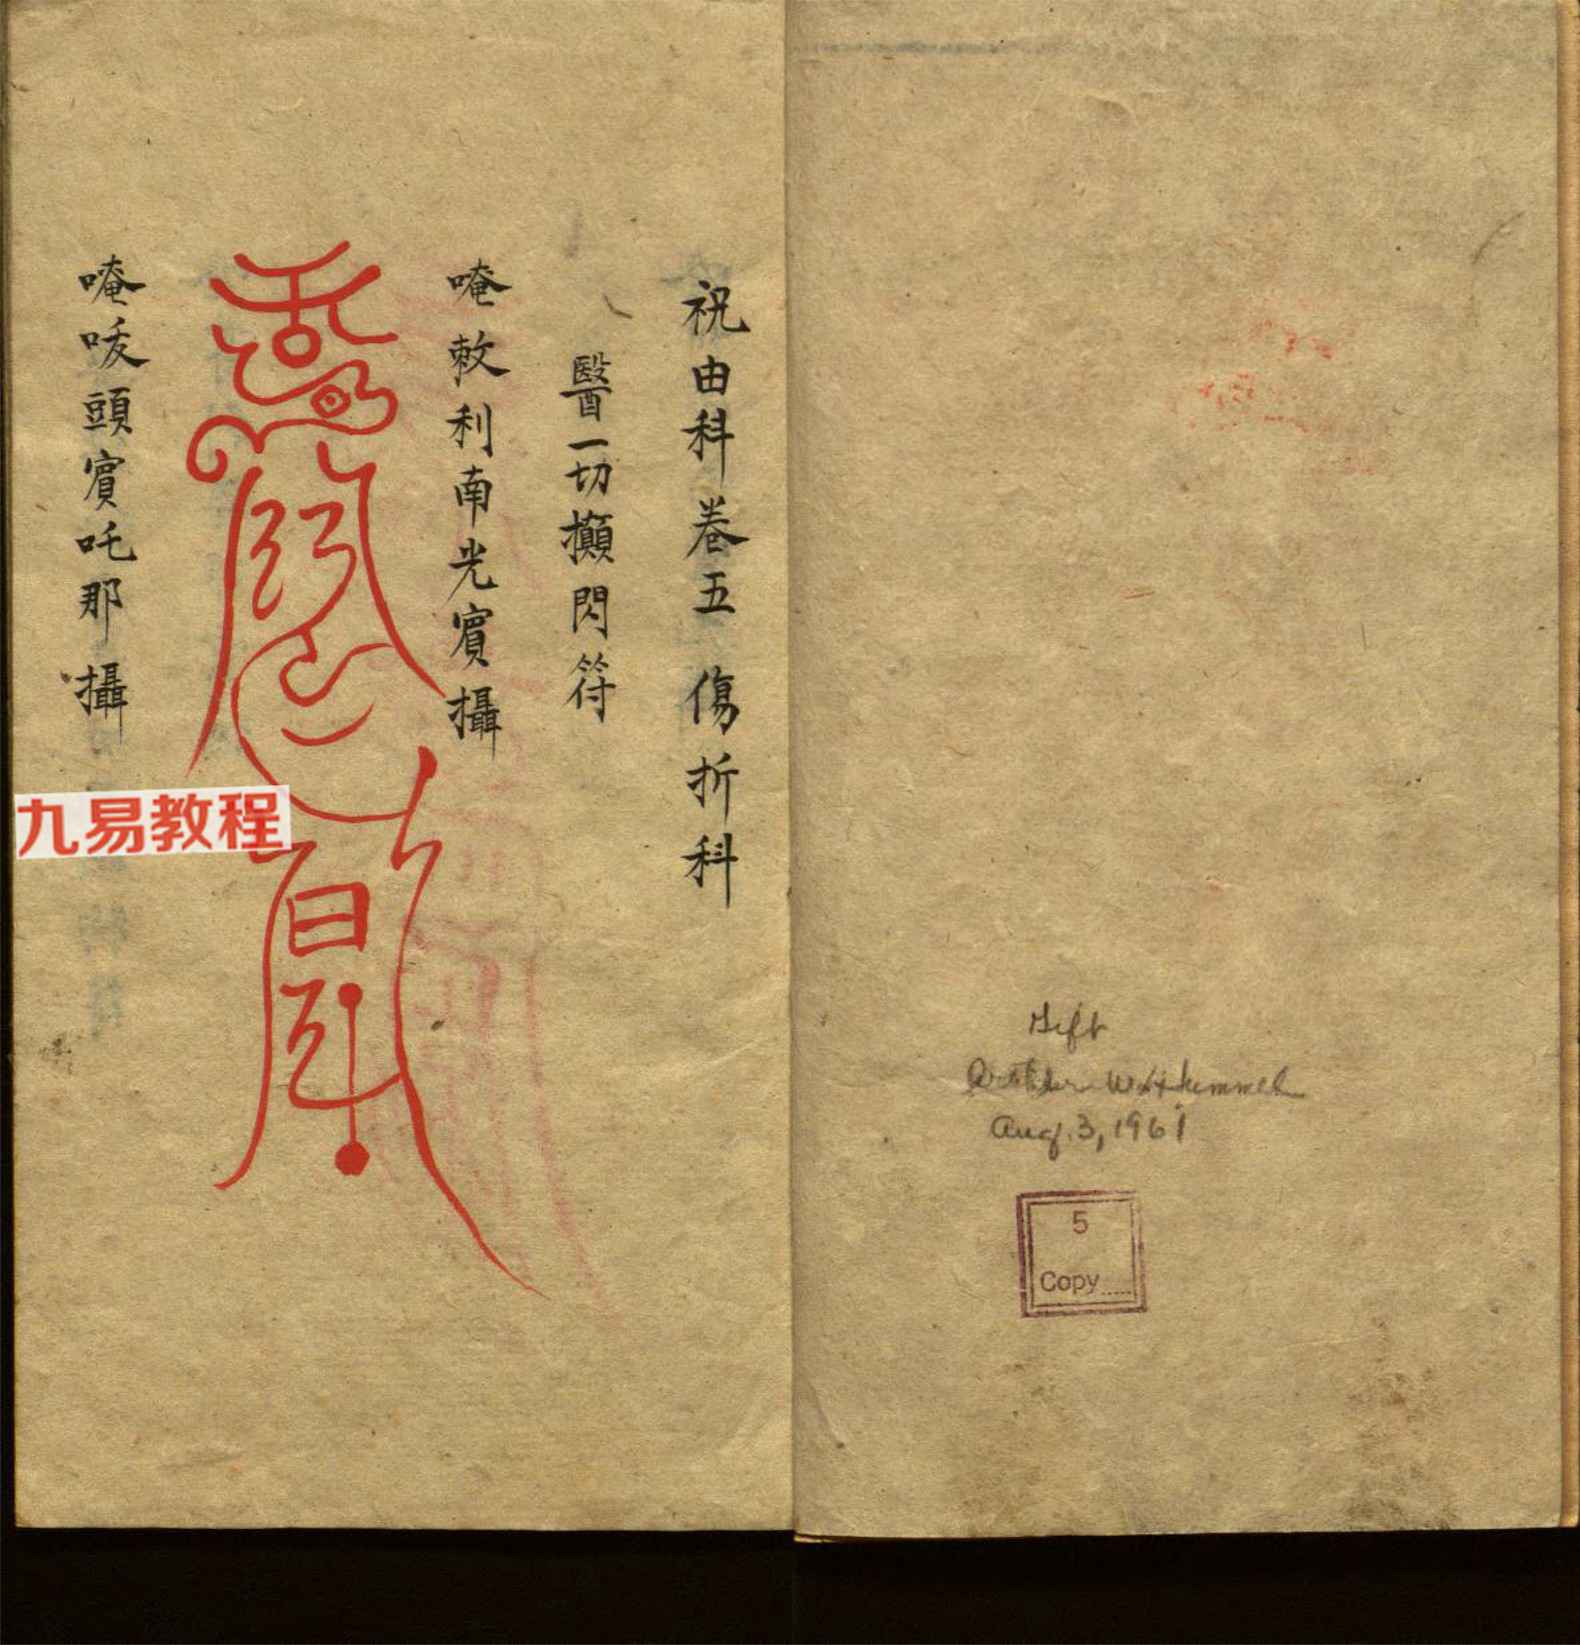 祝由科卷五 傷折科
醫一切攧閃符
唵敕利南光賔攝
唵㖟頭賔吒那攝
九易教程
Gift
Arthur W. Hummel
Aug. 3, 1961
5
Copy